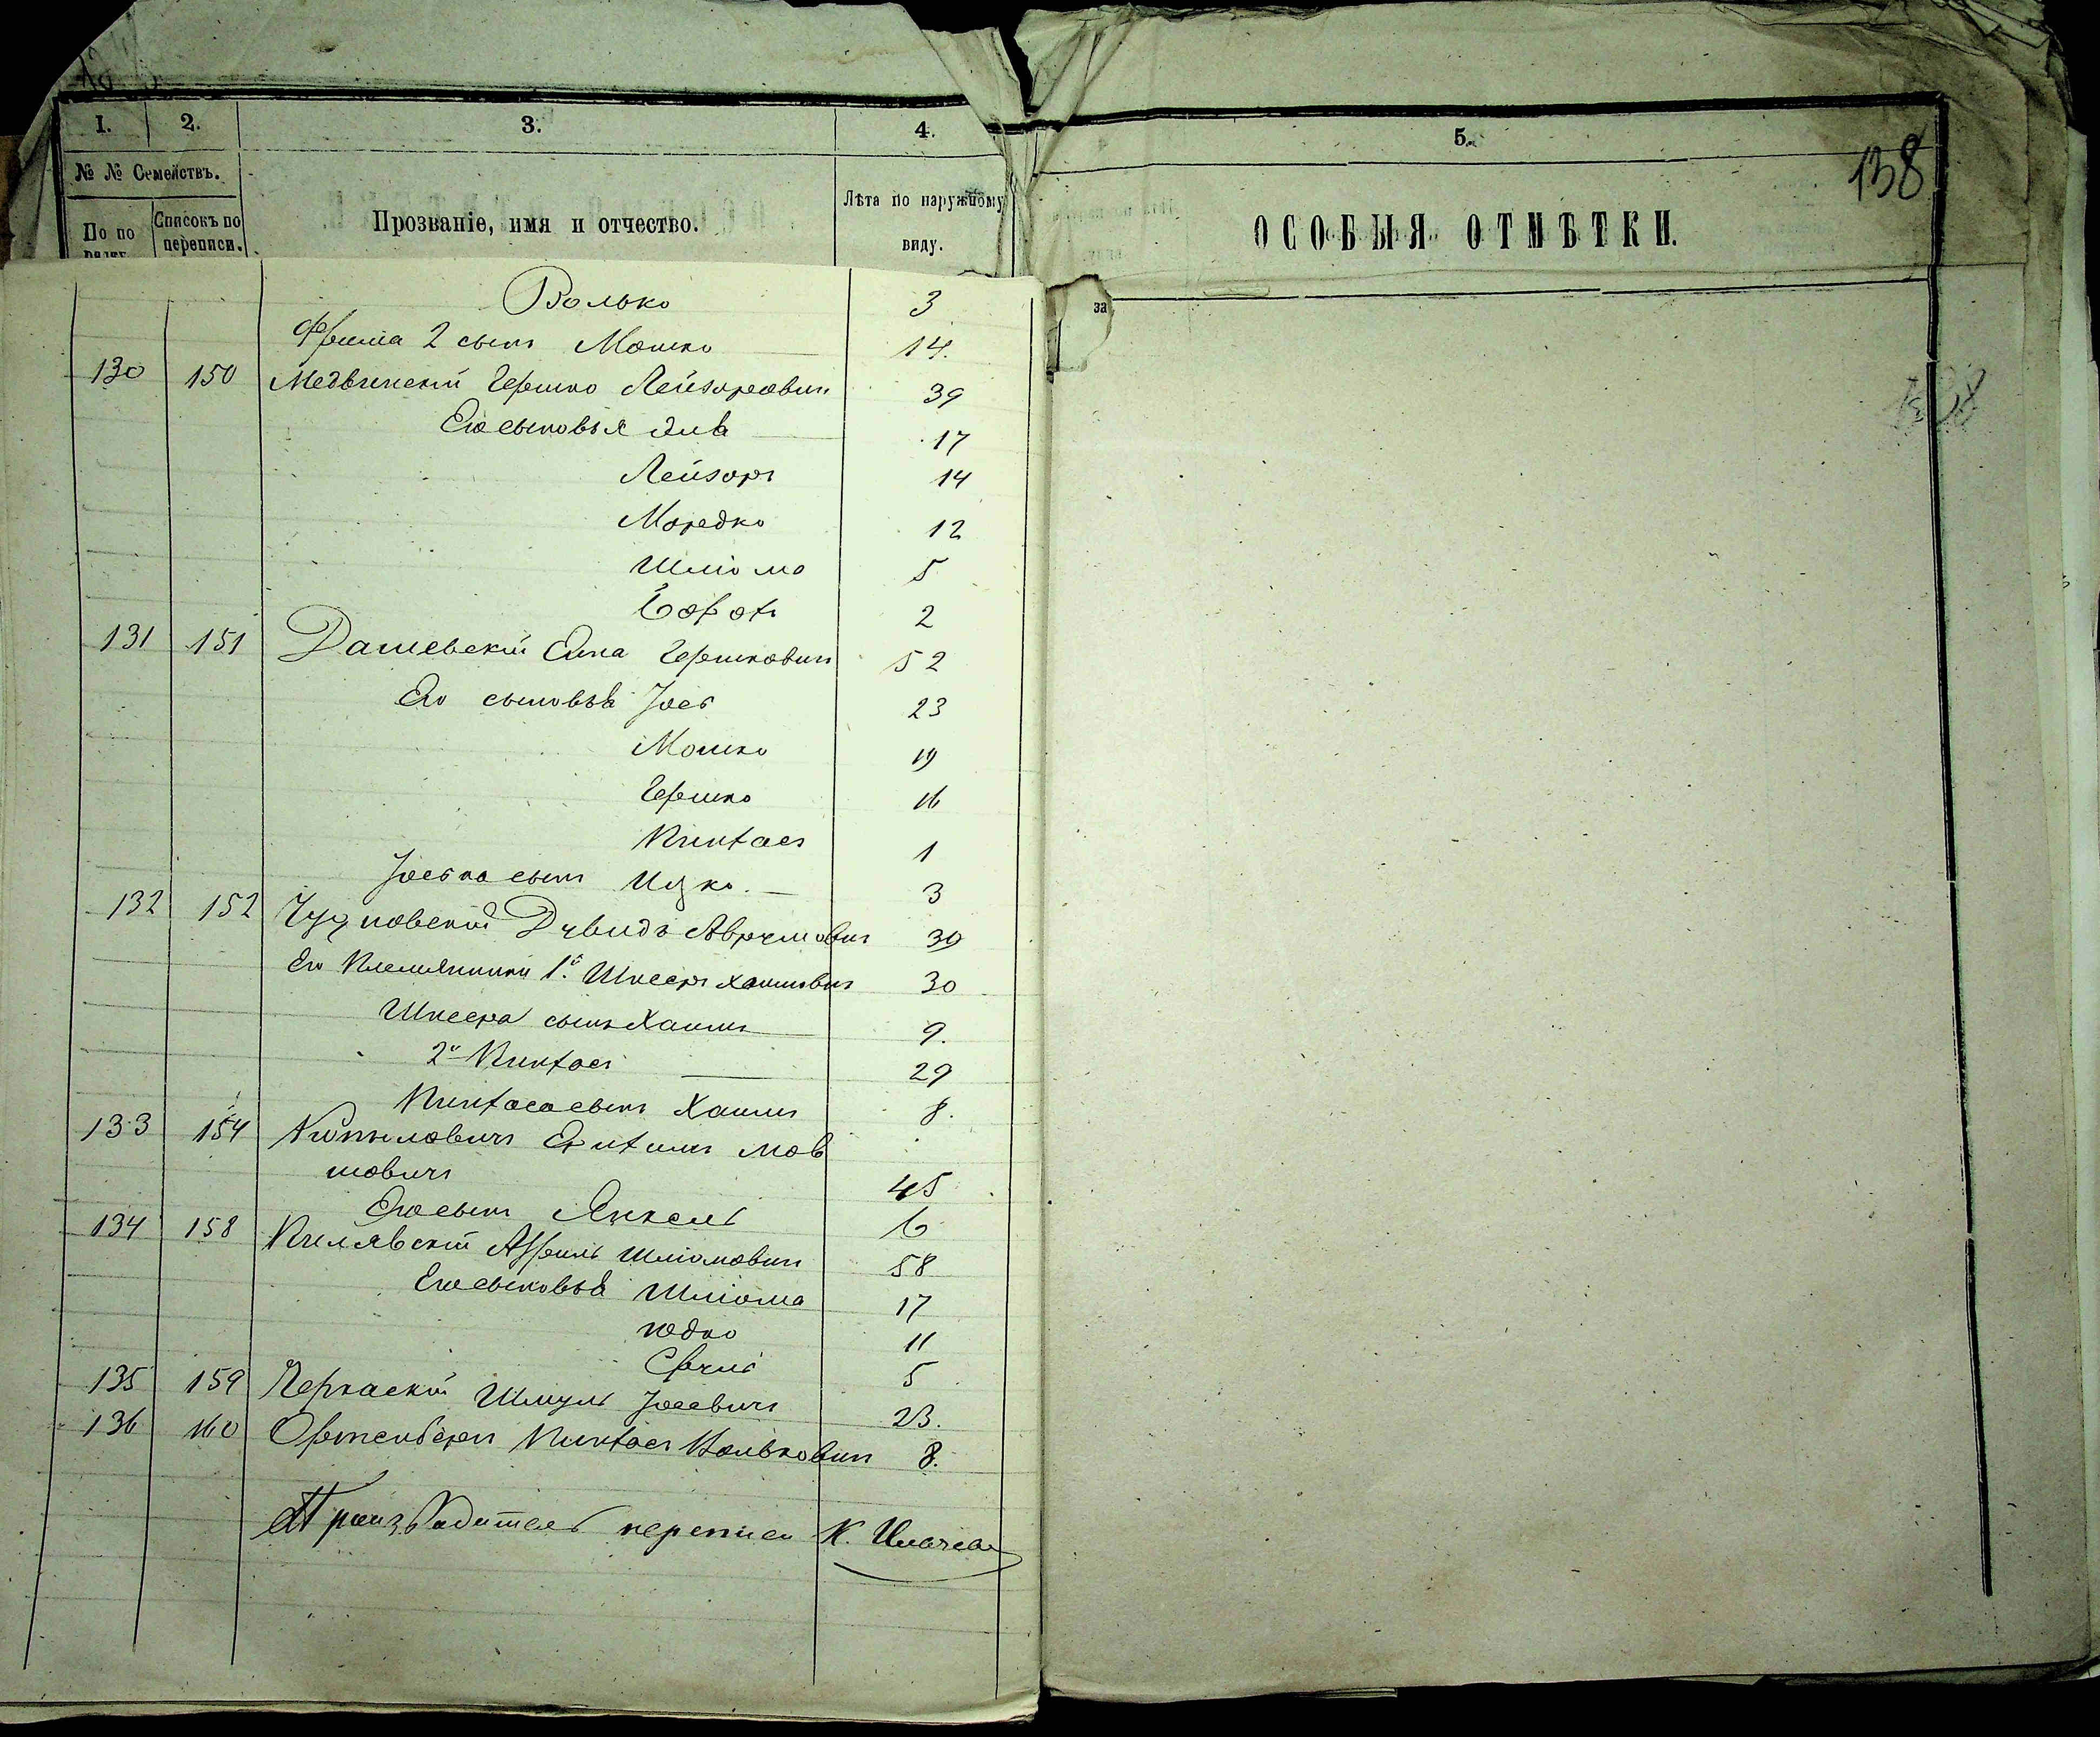 1. 2. 3. 4. 5.
138
№ № Семействъ.
По по Списокъ по переписи.
Прозваніе, имя и отчество.
Лѣта по наружному виду.
ОСОБЫЯ ОТМѢТКИ.
за
Волько 3
2 сынъ Мошко 14.
130 150 Медвинскій Гершко Лейзоровичъ 39
Его сыновья 17
Лейзоръ 14
Мордко 12
Шліома 5
2
131 151 Дашевскій Гершковичъ 52
Его сыновья Іось 23
Мошко 19
Гершко 16
Пинхасъ 1
Іоська сынъ Ицко 3
132 152 Чудновскій Дувидъ Аврумовичъ 39
Его племянники 1й Шнееръ Хаимовичъ 30
Шнеера сынъ Хаимъ 9.
2й Пинхасъ 29
Пинхаса сынъ Хаимъ 8.
133 154 Мов
шовичъ 45
Его сынъ Янкель 6
134 158 Килявскій Шліомовичъ 58
Его сыновья Шліома 17
Юдко 11
Сруль 5
135 159 Черкаскій Шмуль Іосевичъ 23.
136 160 Ортенбергъ Пинхасъ Вольковичъ 8.
Производитель переписи К.